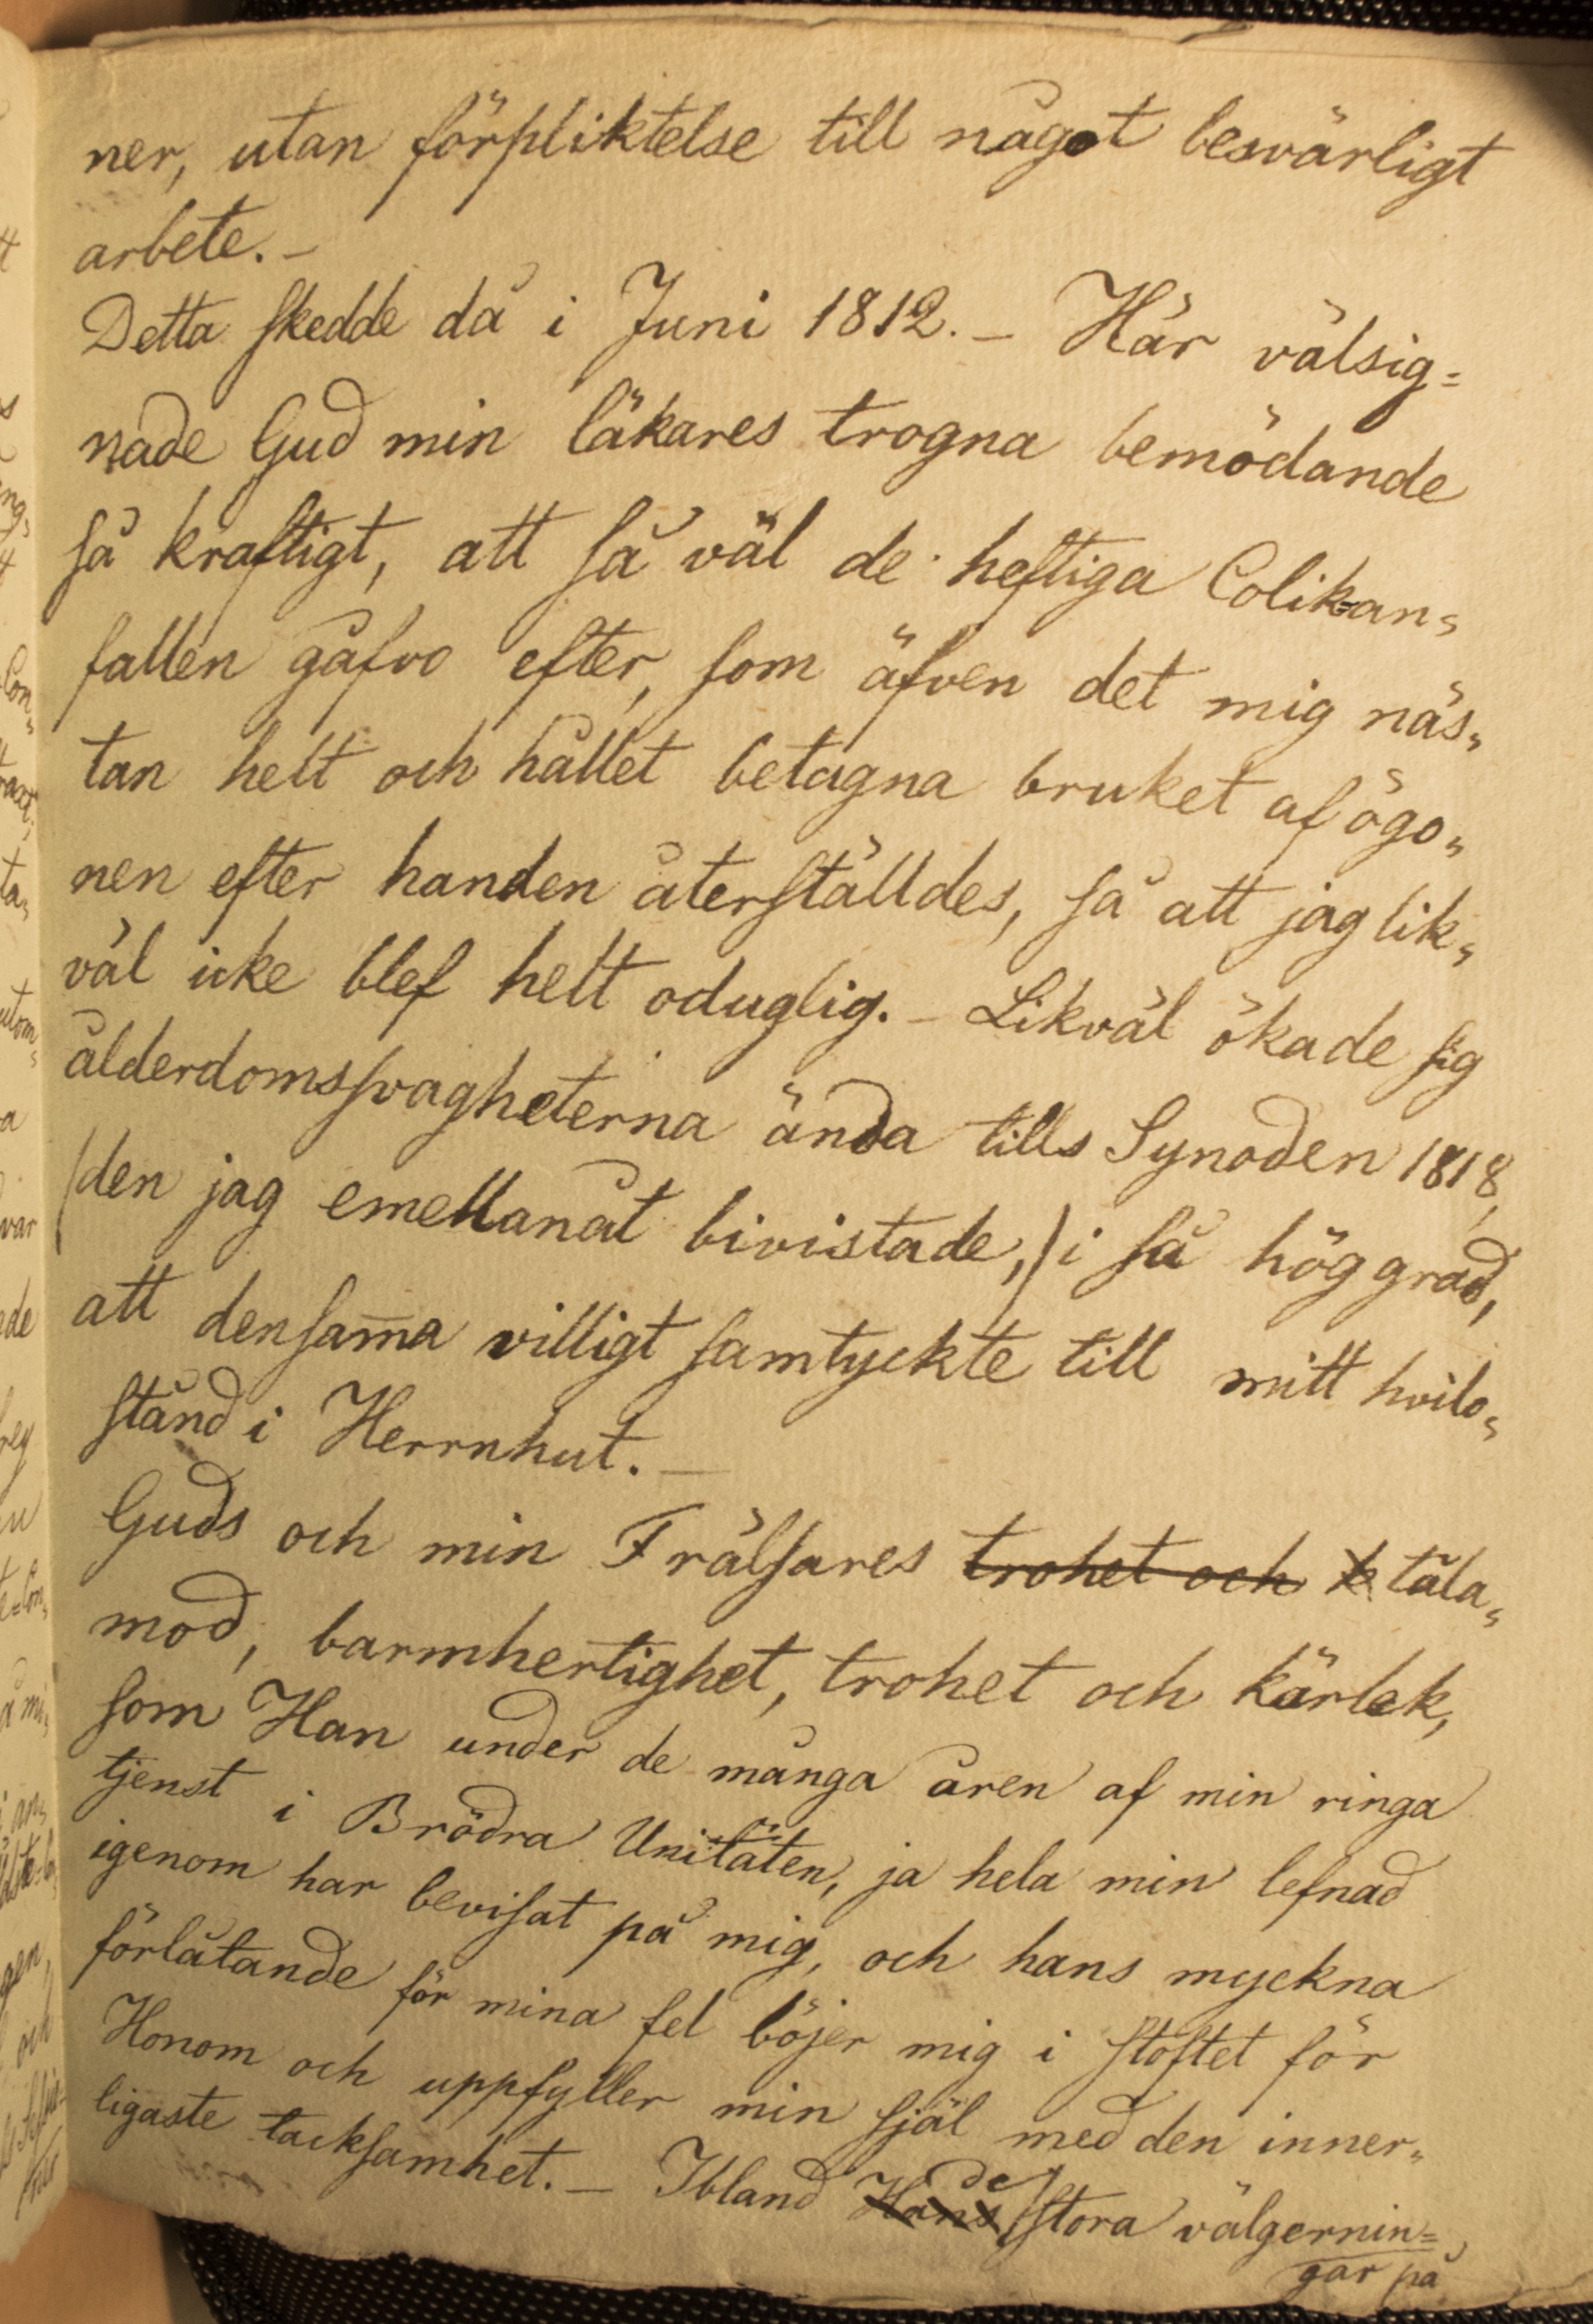 ner, utan förpliktelse till något besvärligt
arbete. –
Detta skedde då i Juni 1812. – Här välsig=
nade Gud min läkares trogna bemödande
så kraftigt, att så väl de heftiga Colik=an=
fallen gåfvo efter, som äfven det mig näs=
tan helt och hållet betagna bruket af ögo=
nen efter handen återställdes, så att jag lik=
väl icke blef helt oduglig. – Likväl ökade sig
ålderdomssvagheterna ända tills Synoden 1818,
(den jag emellanåt bivistade,) i så hög grad,
att densam̄a villigt samtyckte till mitt hvilo=
stånd i Herrnhut. –
Guds och min Frälsares trohet och k tåla=
mod, barmhertighet, trohet och kärlek,
som Han under de många åren af min ringa
tjenst i Brödra Unitäten, ja hela min lefnad
igenom har bevisat på mig, och hans myckna
förlåtande för mina fel böjer mig i stoftet för
Honom och uppfyller min själ med den inner=
ligaste tacksamhet. – Ibland Hans de stora välgernin=
gar på